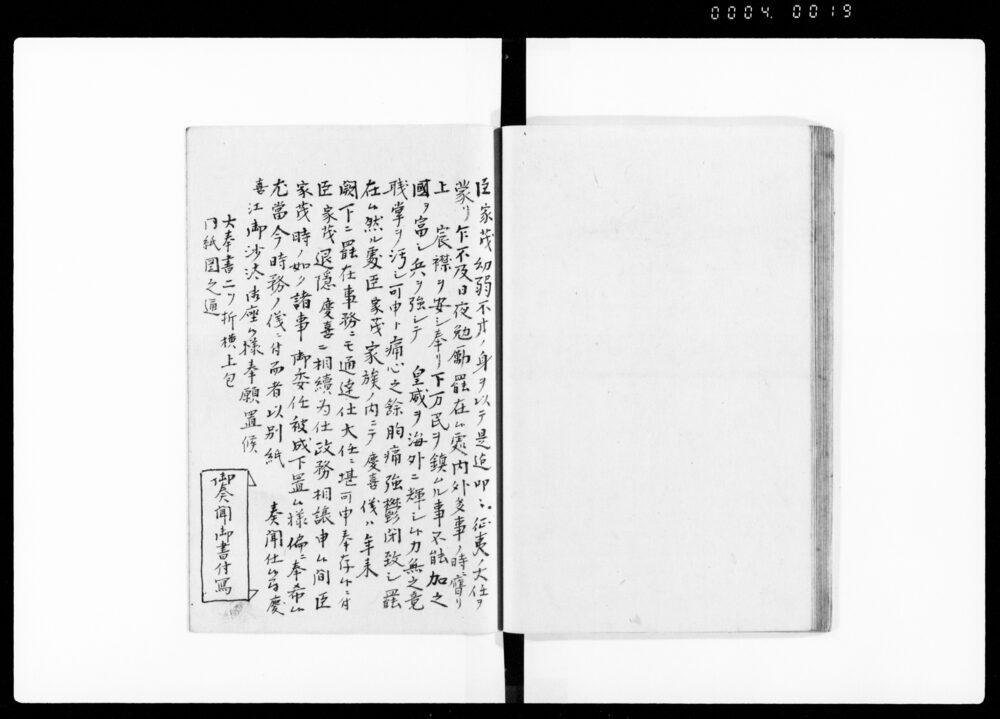 0004. 0019
臣家茂幼弱不才ノ身ヲ以テ是迄叨ニ征夷ノ大任ヲ
蒙リ乍不及日夜勉励罷在候處内外多事ノ時ニ膺リ
上 宸襟ヲ安シ奉リ下万民ヲ鎮ムル事不能加之
國ヲ富シ兵ヲ強シテ 皇威ヲ海外ニ輝シ候力無之竟
職掌ヲ汚シ可申ト痛心之餘胸痛強鬱閉致シ罷
在候然ル處臣家茂家族ノ内ニテ慶喜儀ハ年来
闕下ニ罷在事務ニモ通達仕大任ニ堪可申奉存候ニ付
臣家茂退隠慶喜ニ相續為仕政務相譲申候間臣
家茂時ノ如ク諸事 御委任被成下置候様偏ニ奉希候
尤當今時務ノ儀ニ付而者以別紙 奏聞仕候
喜江御沙汰御座候様奉願置候
大奉書二ツ折横上包
同紙図之通
御奏聞御書付写